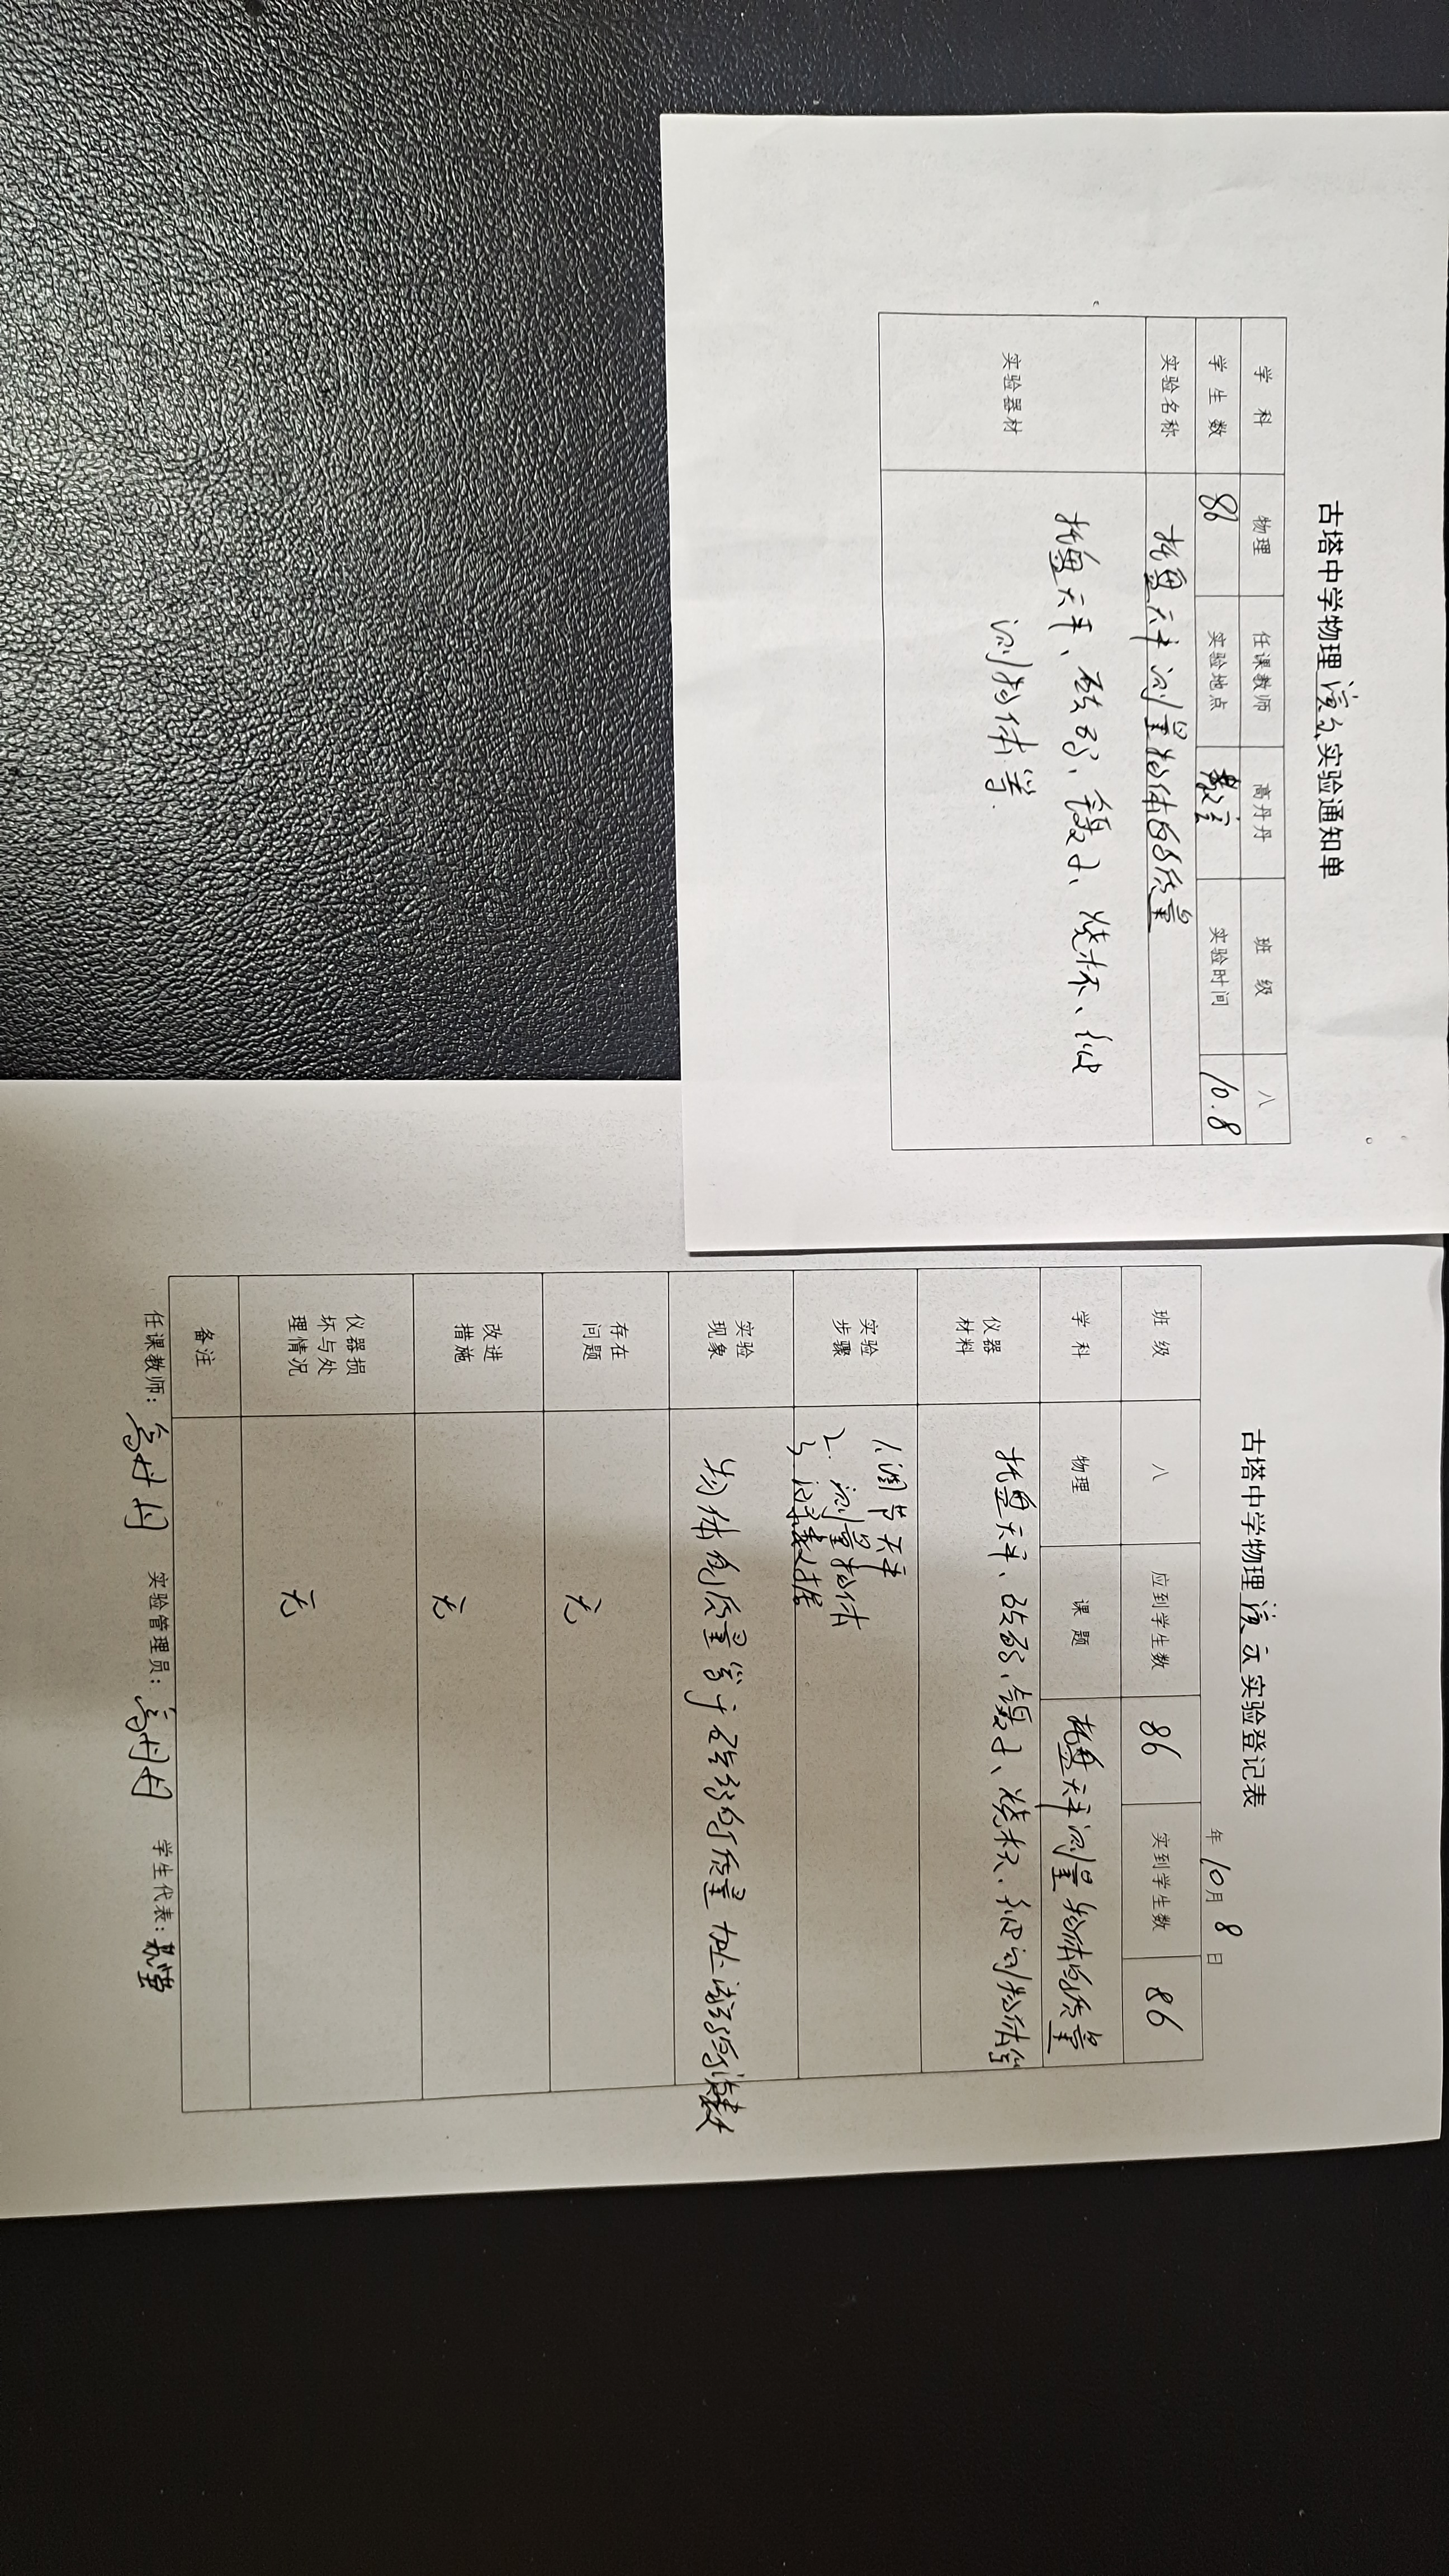 古塔中学物理演示实验通知单
学 科 物理 任课教师 高丹丹 班 级 八
学 生 数 86 实验地点 教室 实验时间 10.8
实验名称 托盘天平测量物体的质量
实验器材 托盘天平、砝码、镊子、烧杯、待
测物体等.
古塔中学物理演示实验登记表
年10月8日
班 级 八 应到学生数 86 实到学生数 86
学 科 物理 课 题 托盘天平测量物体的质量
仪器
材料 托盘天平、砝码、镊子、烧杯、待测物体等
实验
步骤 1.调节天平
2.测量物体
3.记录数据
实验
现象 物体的质量等于砝码的质量加上游码的读数
存在
问题 无
改进
措施 无
仪器损
坏与处
理情况 无
备注
任课教师：高丹丹 实验管理员：高丹丹 学生代表：